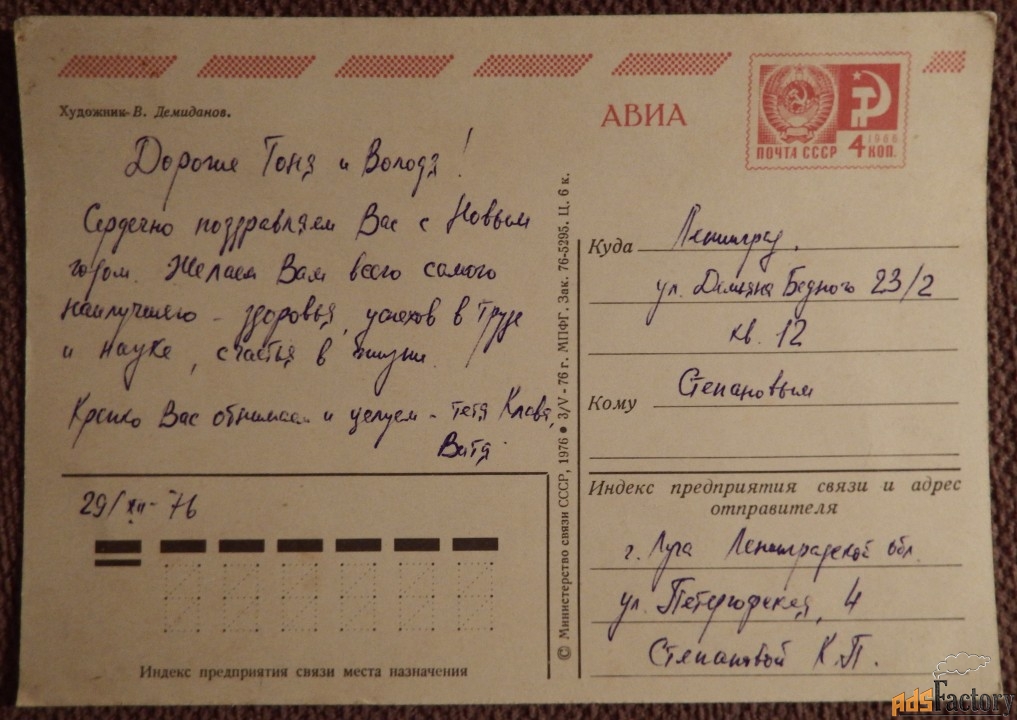 Художник В. Демиданов.
АВИА
ПОЧТА СССР
1966
4 КОП.
Дорогие Тоня и Володя!
Сердечно поздравляем Вас с Новым
годом. Желаем Вам всего самого
наилучшего - здоровья, успехов в труде
и науке, счастья в жизни.
Крепко Вас обнимаем и целуем - тетя Клава,
Витя
29/XII-76
Индекс предприятия связи места назначения
© Министерство связи СССР, 1976 ● 3/V-76 г. МПФГ. Зак. 76-5295. Ц. 6 к.
Куда Ленинград.
ул. Демьяна Бедного 23/2
кв. 12
Кому Степановым
Индекс предприятия связи и адрес
отправителя
г. Луга Ленинградской обл.
ул. Петергофская, 4
Степановой К.П.
AdsFactory